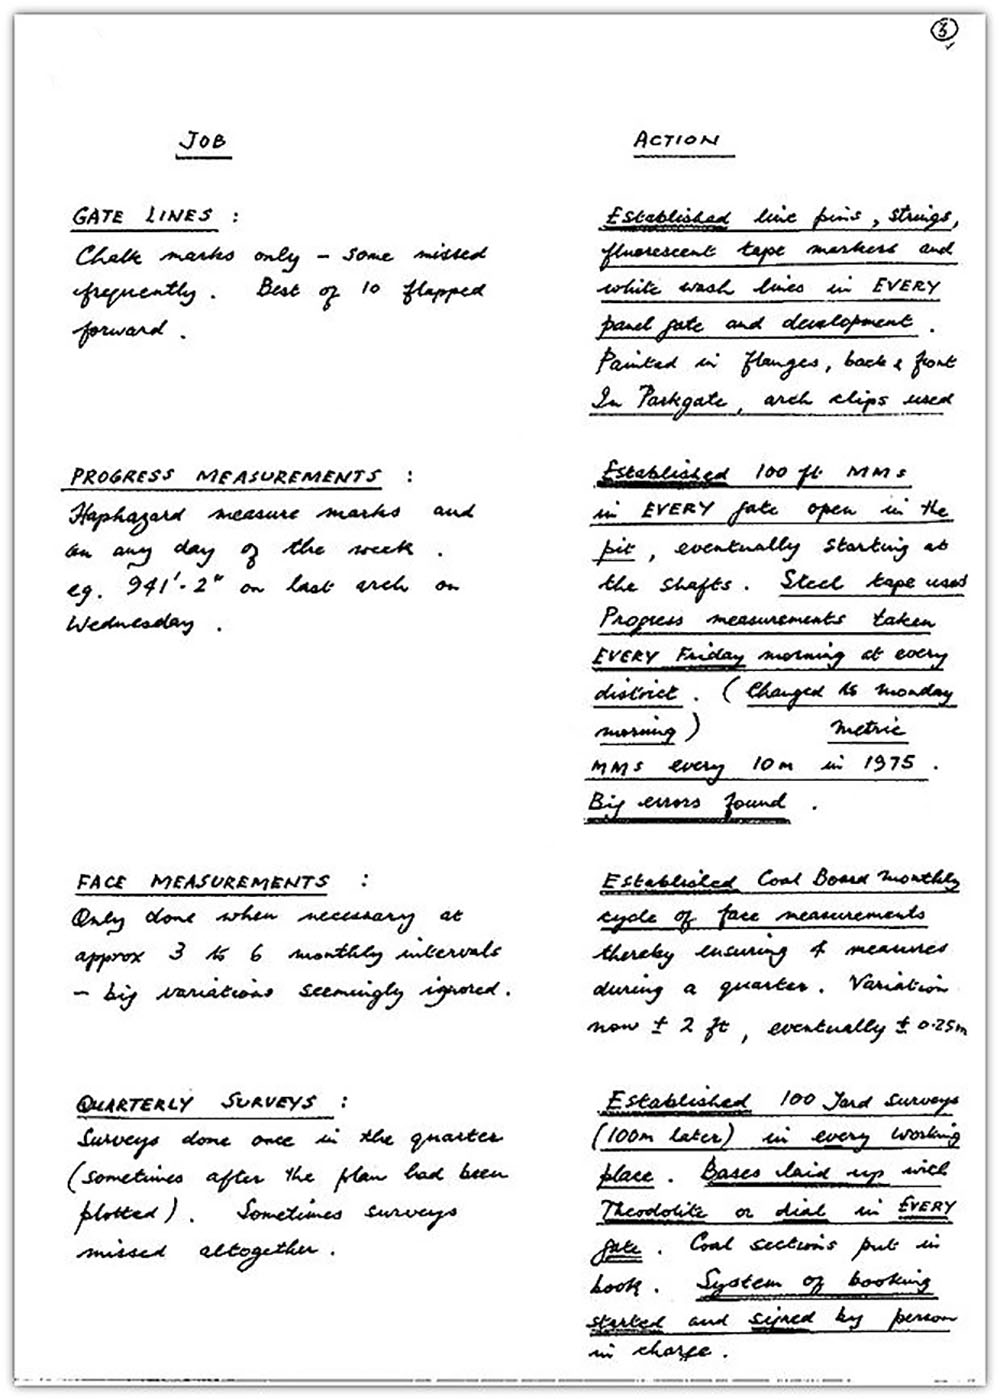 3
JOB
ACTION
GATE LINES :
Chalk marks only - some missed
frequently. Best of 10 flapped
forward.
Established line pins, strings,
fluorescent tape markers and
white wash lines in EVERY
panel gate and development.
Painted in flanges, back & front
In Parkgate, arch clips used
PROGRESS MEASUREMENTS :
Haphazard measure marks and
on any day of the week.
eg. 941'-2" on last arch on
Wednesday.
Established 100 ft MMs
in EVERY gate open in the
pit, eventually starting at
the shafts. Steel tape used
Progress measurements taken
EVERY Friday morning at every
district. (Changed to Monday
morning) Metric
MMs every 10m in 1975.
Big errors found.
FACE MEASUREMENTS :
Only done when necessary at
approx 3 to 6 monthly intervals
- big variations seemingly ignored.
Established Coal Board monthly
cycle of face measurements
thereby ensuring 4 measures
during a quarter. Variation
now ± 2 ft, eventually ± 0.25m
QUARTERLY SURVEYS :
Surveys done once in the quarter
(sometimes after the plan had been
plotted). Sometimes surveys
missed altogether.
Established 100 Yard surveys
(100m later) in every working
place. Bases laid up with
Theodolite or dial in EVERY
gate. Coal sections put in
book. System of booking
started and signed by person
in charge.